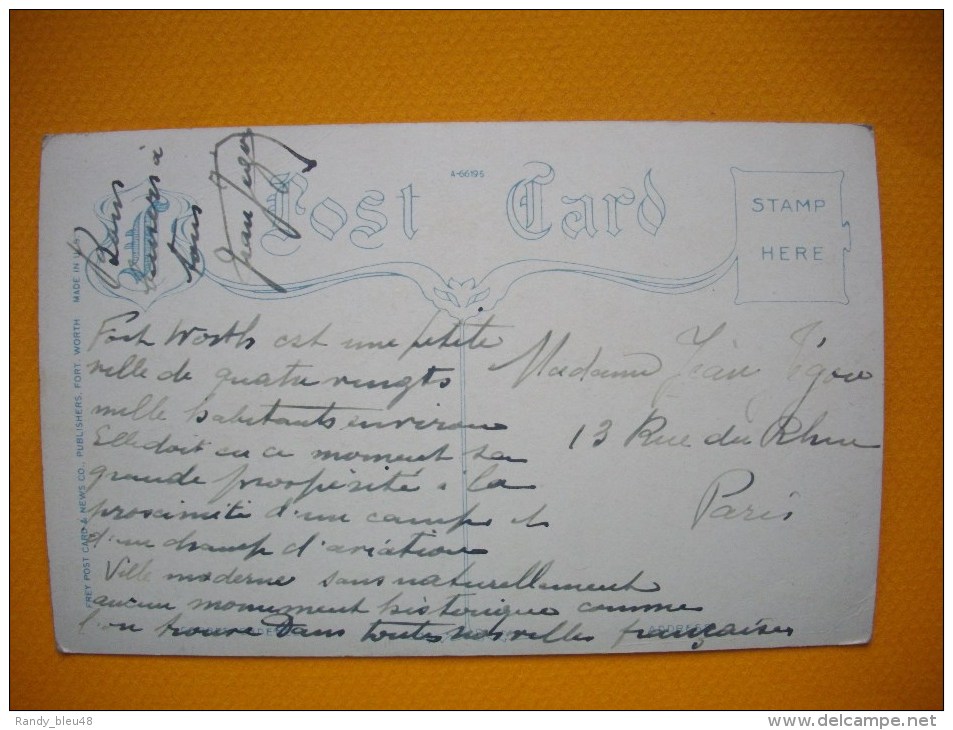 Bons
baisers à
tous
Jean
Post Card
A-66196
STAMP
HERE
MADE IN U.S.A.
FREY POST CARD & NEWS CO., PUBLISHERS, FORT. WORTH
Fort Worth est une petite
ville de quatre vingts
mille habitants environ
Elle doit en ce moment sa
grande prospérité à la
proximité d'un camp et
d'un champ d'aviation
Ville moderne sans naturellement
aucun monument historique comme
l'on trouve dans toutes nos villes françaises
Madame Jean
13 Rue du Rhin
Paris
ADDRESS
Randy_bleu48
www.delcampe.net